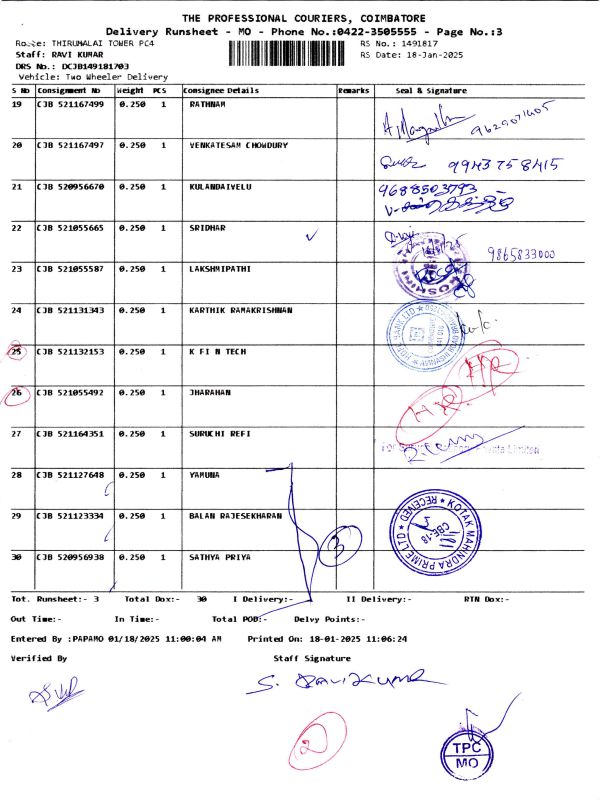 THE PROFESSIONAL COURIERS, COIMBATORE
Delivery Runsheet - MO - Phone No.:0422-3505555 - Page No.:3
Route: THIRUMALAI TOWER PC4 RS No.: 1491817
Staff: RAVI KUMAR RS Date: 18-Jan-2025
DRS No.: DCJB149181703
Vehicle: Two Wheeler Delivery
S No Consignment No Weight PCS Consignee Details Remarks Seal & Signature
19 CJB 521167499 0.250 1 RATHNAM
9629071605
20 CJB 521167497 0.250 1 VENKATESAM CHOWDURY
9943758415
21 CJB 520956670 0.250 1 KULANDAIVELU 9688503793
22 CJB 521055665 0.250 1 SRIDHAR
9865833000
23 CJB 521055587 0.250 1 LAKSHMIPATHI
24 CJB 521131343 0.250 1 KARTHIK RAMAKRISHNAN
25 CJB 521132153 0.250 1 K F I N TECH
26 CJB 521055492 0.250 1 JHARAHAN
27 CJB 521164351 0.250 1 SURUCHI REFI
Limited
28 CJB 521127648 0.250 1 YAMUNA
29 CJB 521123334 0.250 1 BALAN RAJESEKHARAN
KOTAK MAHINDRA PRIME LTD
RECEIVED
CBE-18
3
30 CJB 520956938 0.250 1 SATHYA PRIYA
Tot. Runsheet:- 3 Total Dox:- 30 I Delivery:- II Delivery:- RTN Dox:-
Out Time:- In Time:- Total POD:- Delvy Points:-
Entered By :PAPAMO 01/18/2025 11:00:04 AM Printed On: 18-01-2025 11:06:24
Verified By Staff Signature
S. Ravikumar
2
TPC
MO